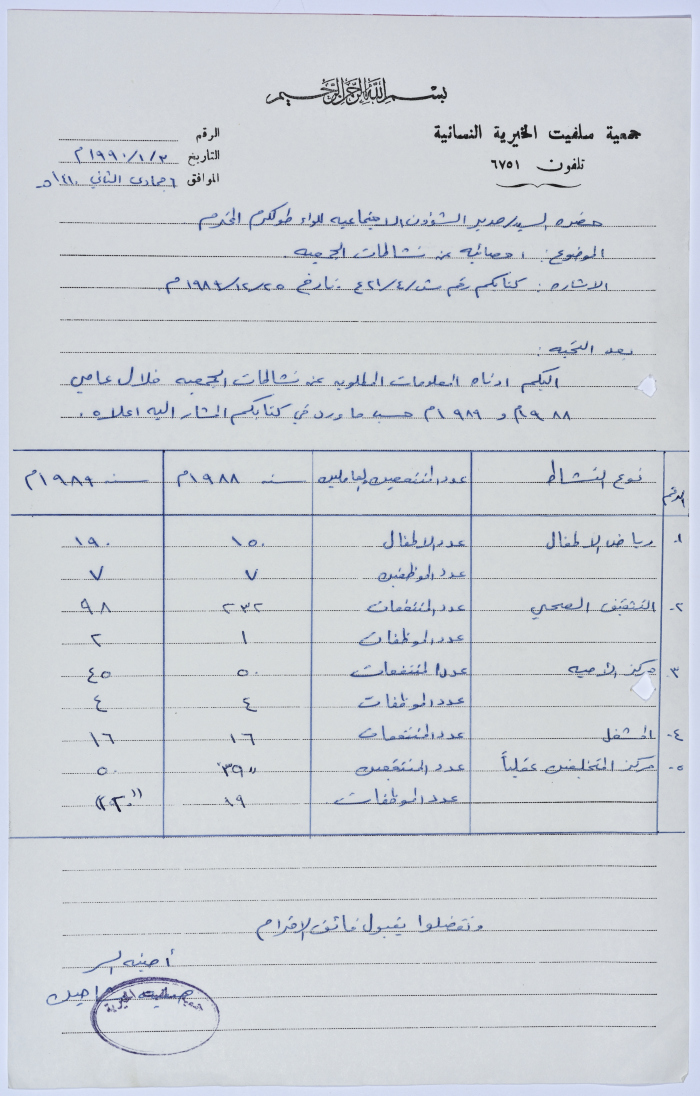 بسم الله الرحمن الرحيم
جمعية سلفيت الخيرية النسائية
تلفون ٦٧٥١
الرقم
التاريخ ٣/١/١٩٩٠م
الموافق ٦ جمادى الثاني ١٤١٠هـ
حضرة السيد/مدير الشؤون الاجتماعيه للواء طولكرم المحترم
الموضوع: احصائيه عن نشاطات الجمعيه
الاشاره: كتابكم رقم ش/٤/٤٢١ تاريخ ٢٥/١٢/١٩٨٩م
بعد التحيه:
اليكم ادناه المعلومات المطلوبه عن نشاطات الجمعيه خلال عامي
١٩٨٨م و ١٩٨٩م حسب ما ورد في كتابكم المشار اليه اعلاه.
الرقم نوع النشاط عدد المنتفعين والعاملين سنه ١٩٨٨م سنه ١٩٨٩م
١. رياض الاطفال عدد الاطفال ١٥٠ ١٩٠
عدد الموظفين ٧ ٧
٢. التثقيف الصحي عدد المنتفعات ٢٣٢ ٩٨
عدد الموظفات ١ ٢
٣. مركز الاميه عدد المنتفعات ٥٠ ٤٥
عدد الموظفات ٤ ٤
٤. المشغل عدد المنتفعات ١٦ ١٦
٥. مركز المتخلفين عقلياً عدد المنتفعين ٣٩ ٥٠
عدد الموظفات ١٩
وتفضلوا بقبول فائق الاحترام
أمينه السر